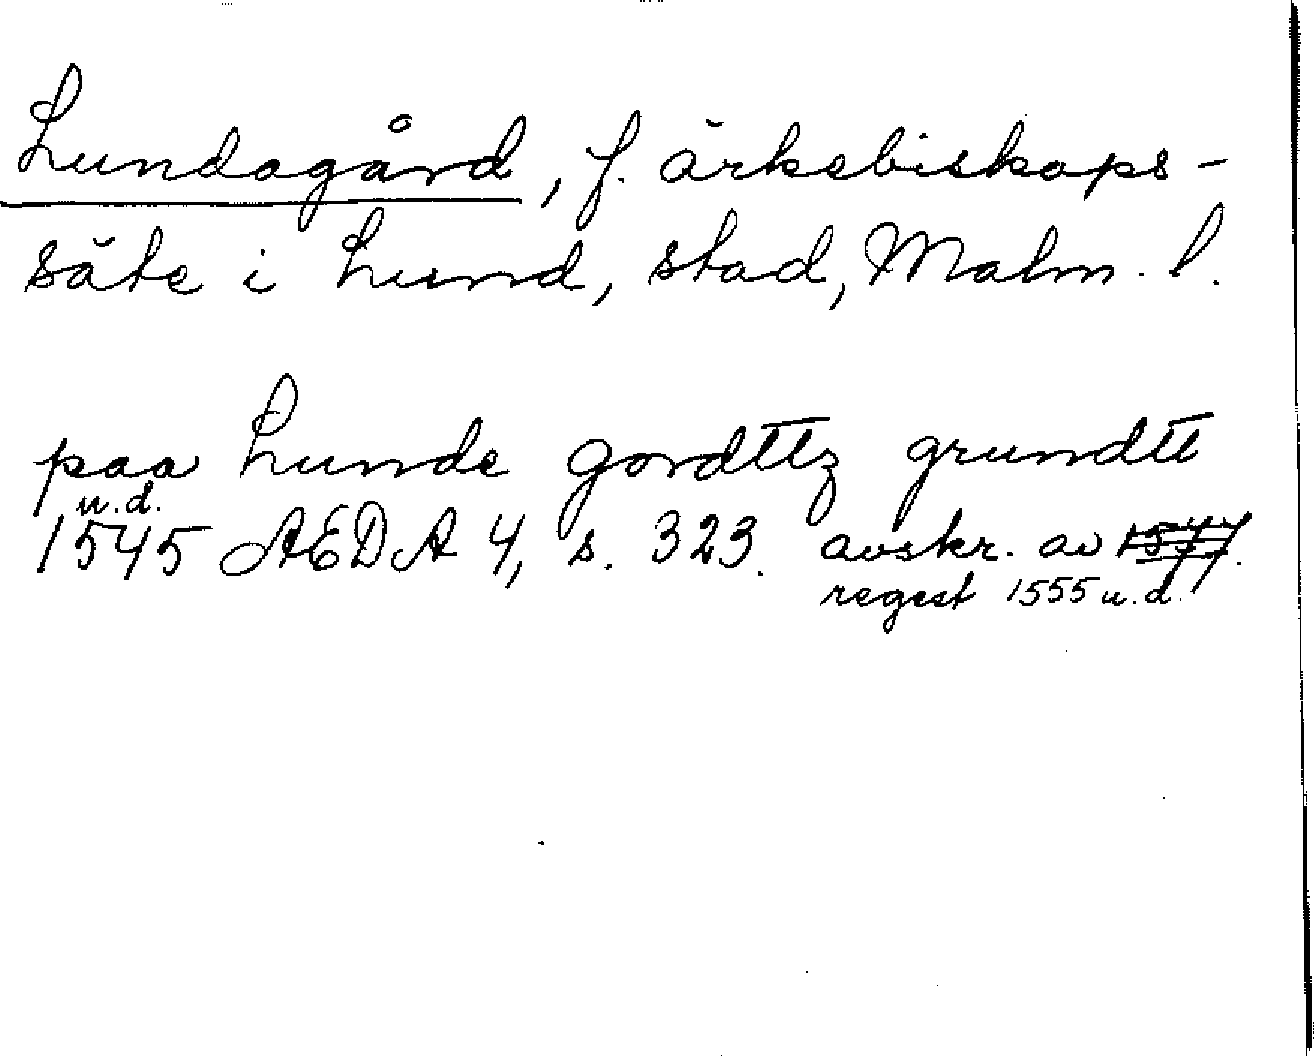 Lundagård, f. ärkebiskops-
säte i Lund, stad, Malm. l.
paa Lunde gordttz grundtt
u.d.
1545 AEDA 4, s. 323. avskr. av 1577.
regest 1555 u.d.